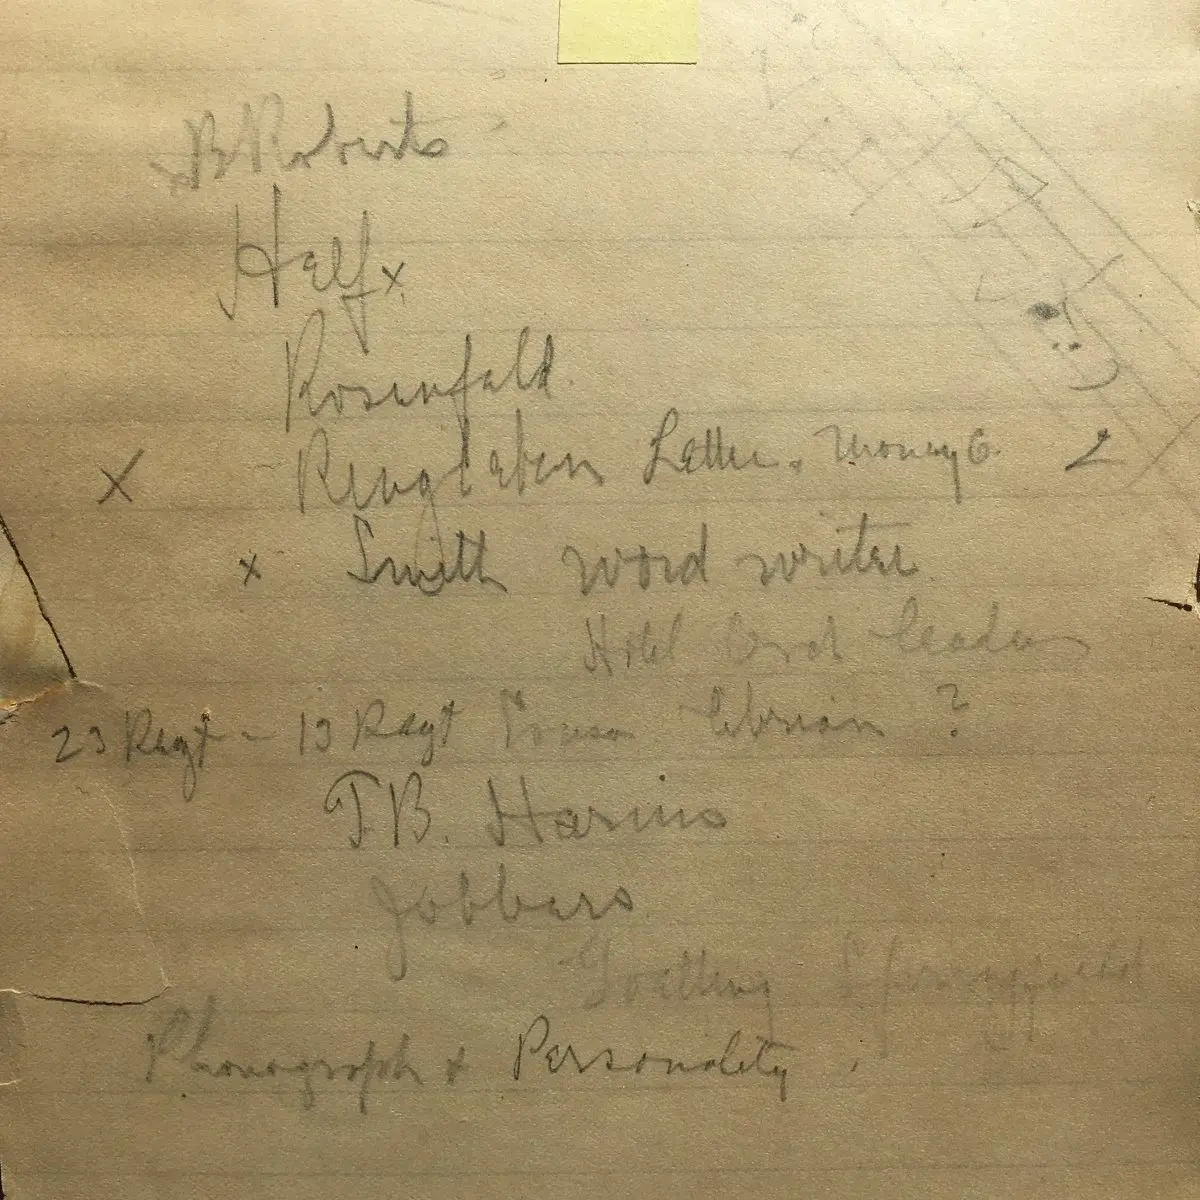 B Roberts
Helf x
Rosenfeld.
X Ringleben Letter. Money 6. 2
x Smith word writer
Hotel Orch leaders
23 Regt - 13 Regt Sousa librian ?
T.B. Harms
Jobbers
Goetting Springfield
Phonograph & Personality.